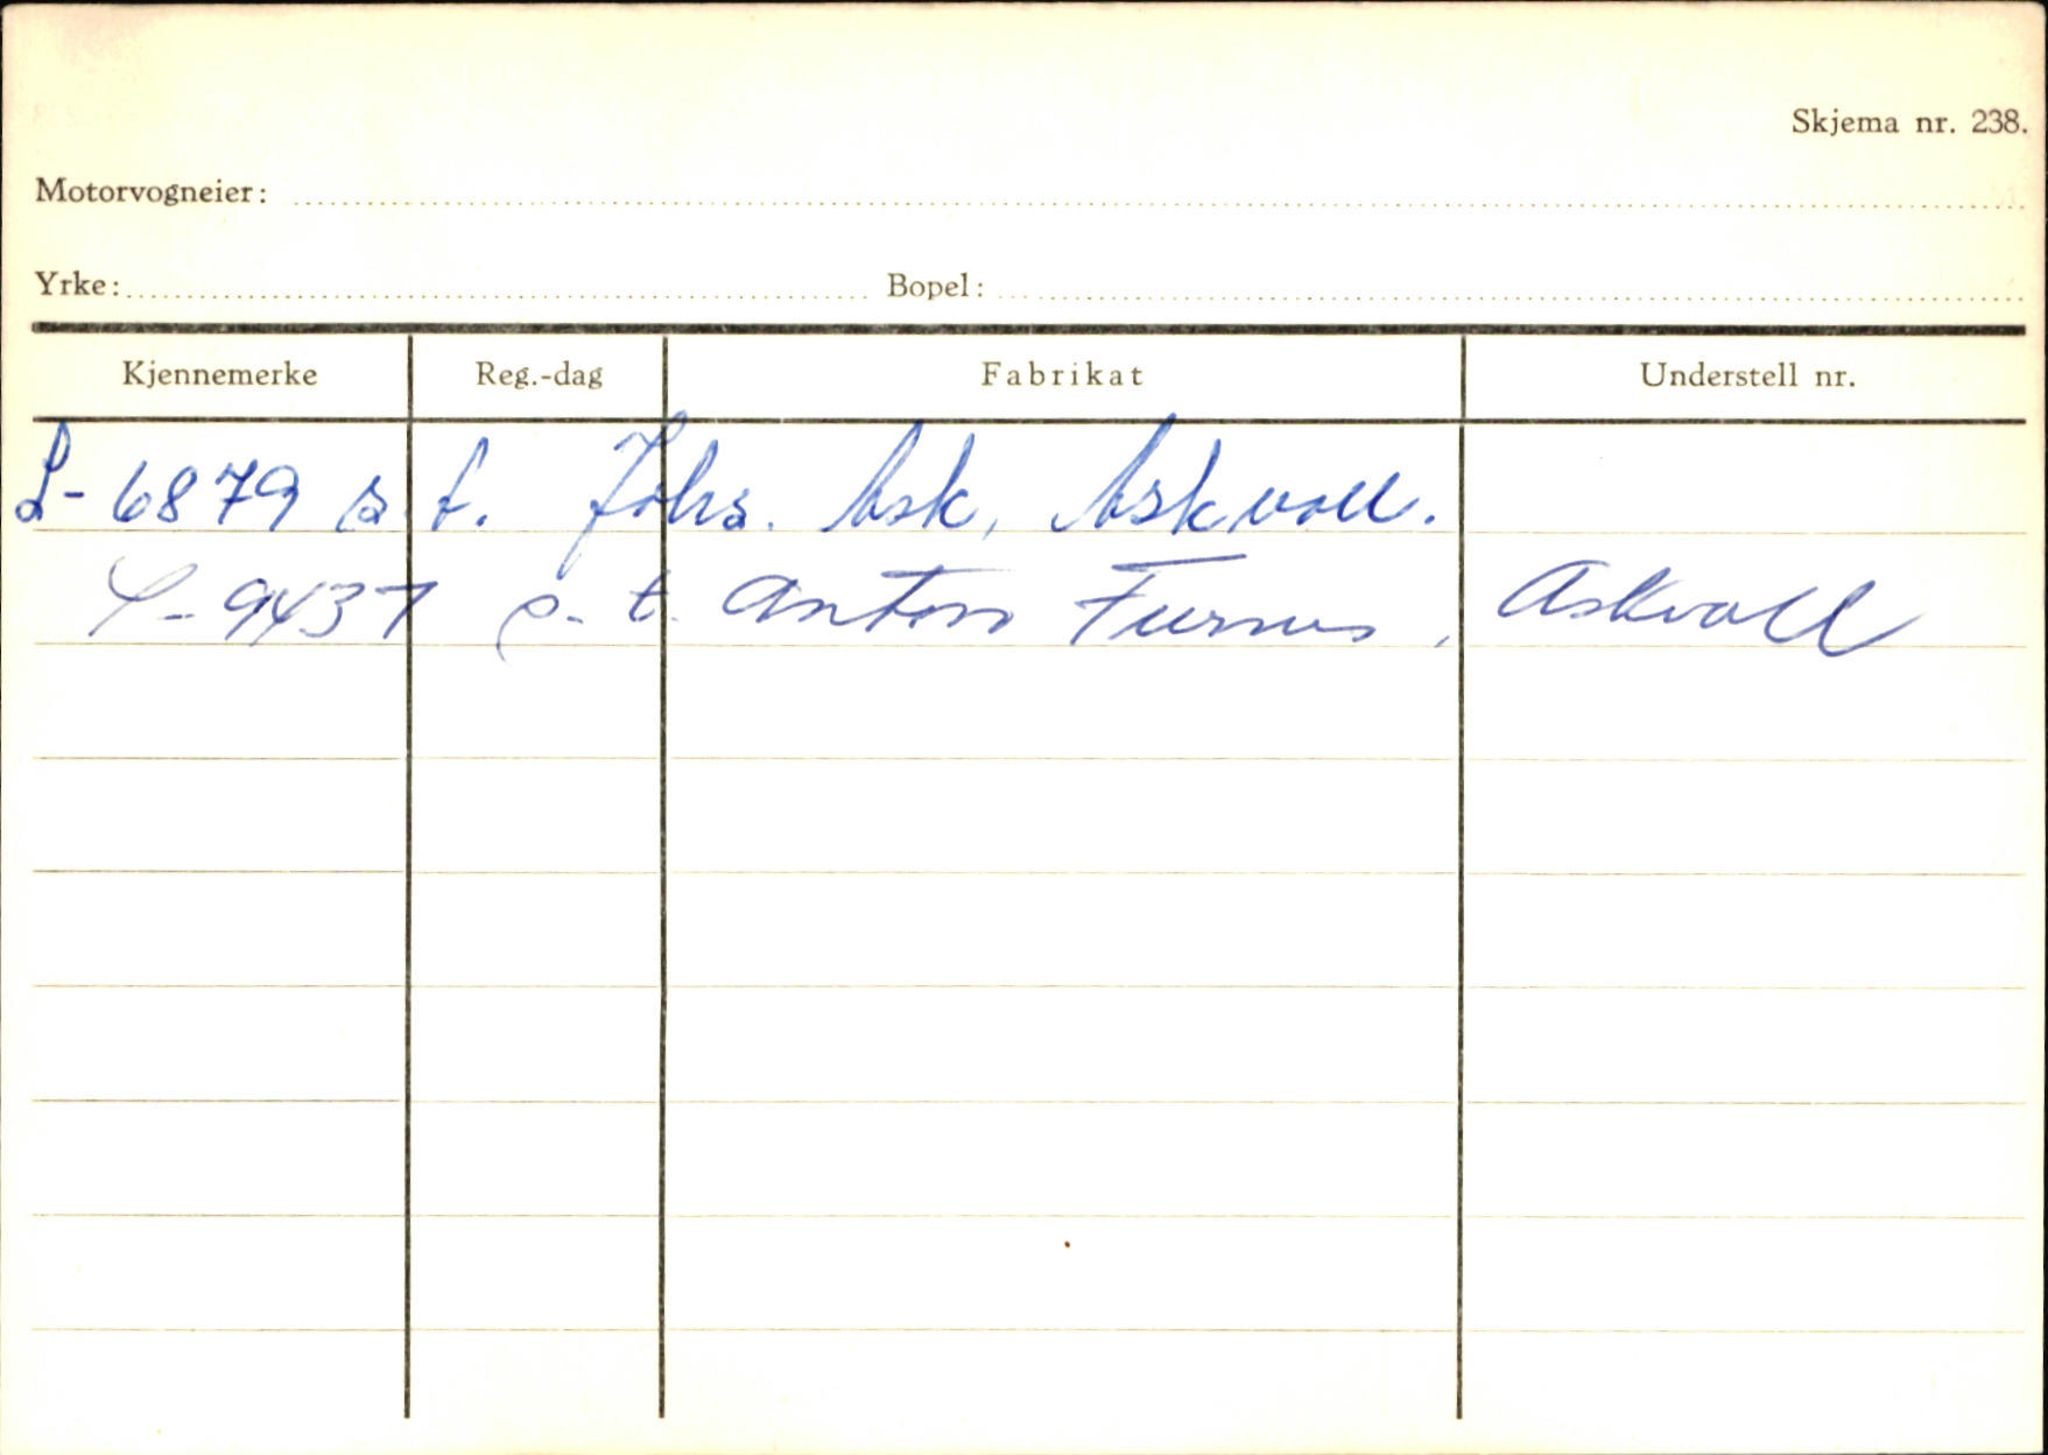 Skjema nr. 238.
Motorvogneier:
Yrke: Bopel:
Kjennemerke Reg.-dag Fabrikat Understell nr.
S-6879 s.t. Johs. Ask, Askvoll.
S-9437 s.t. Anton Furnes, Askvoll